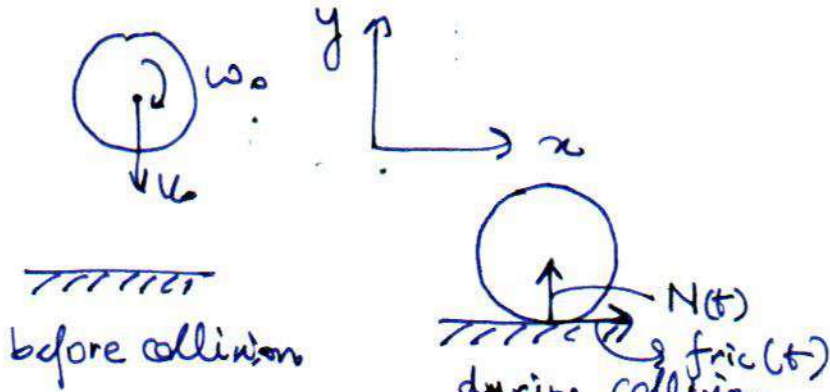 y
ω₀
x
v₀
N(t)
before collision
fric(t)
during collision